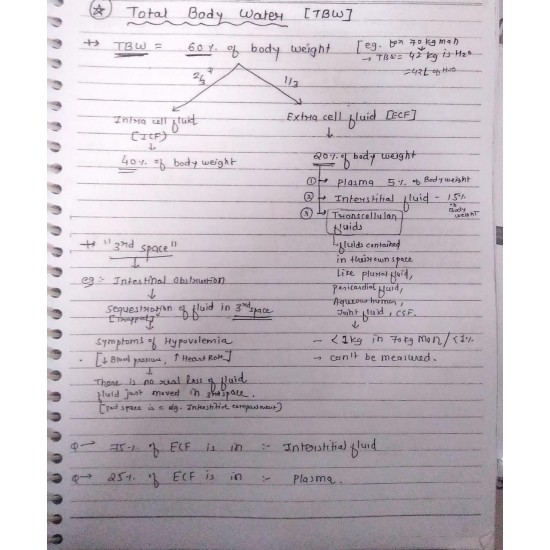 Total Body Water [TBW]
TBW = 60% of body weight [eg. for 70 kg man
→ TBW = 42 kg is H2O
= 42L of H2O
2/3 1/3
Intra cell fluid Extra cell fluid [ECF]
[ICF]
40% of body weight 20% of body weight
① → Plasma 5% of Body weight
② → Interstitial fluid - 15%
of Body weight
③ → Transcellular
fluids
"3rd space" fluids contained
in their own space
eg :- Intestinal Obstruction like plural fluid,
pericardial fluid,
Sequestration of fluid in 3rd space Aqueous humor,
[trapped] Joint fluid, CSF.
Symptoms of Hypovolemia - < 1kg in 70kg Man / < 1%
[↓ Blood pressure, ↑ Heart Rate] - can't be measured.
There is no real loss of fluid
fluid just moved in 3rd space.
[3rd space is eg. Interstitial compartment)
Q → 75% of ECF is in :- Interstitial fluid
Q → 25% of ECF is in :- Plasma.